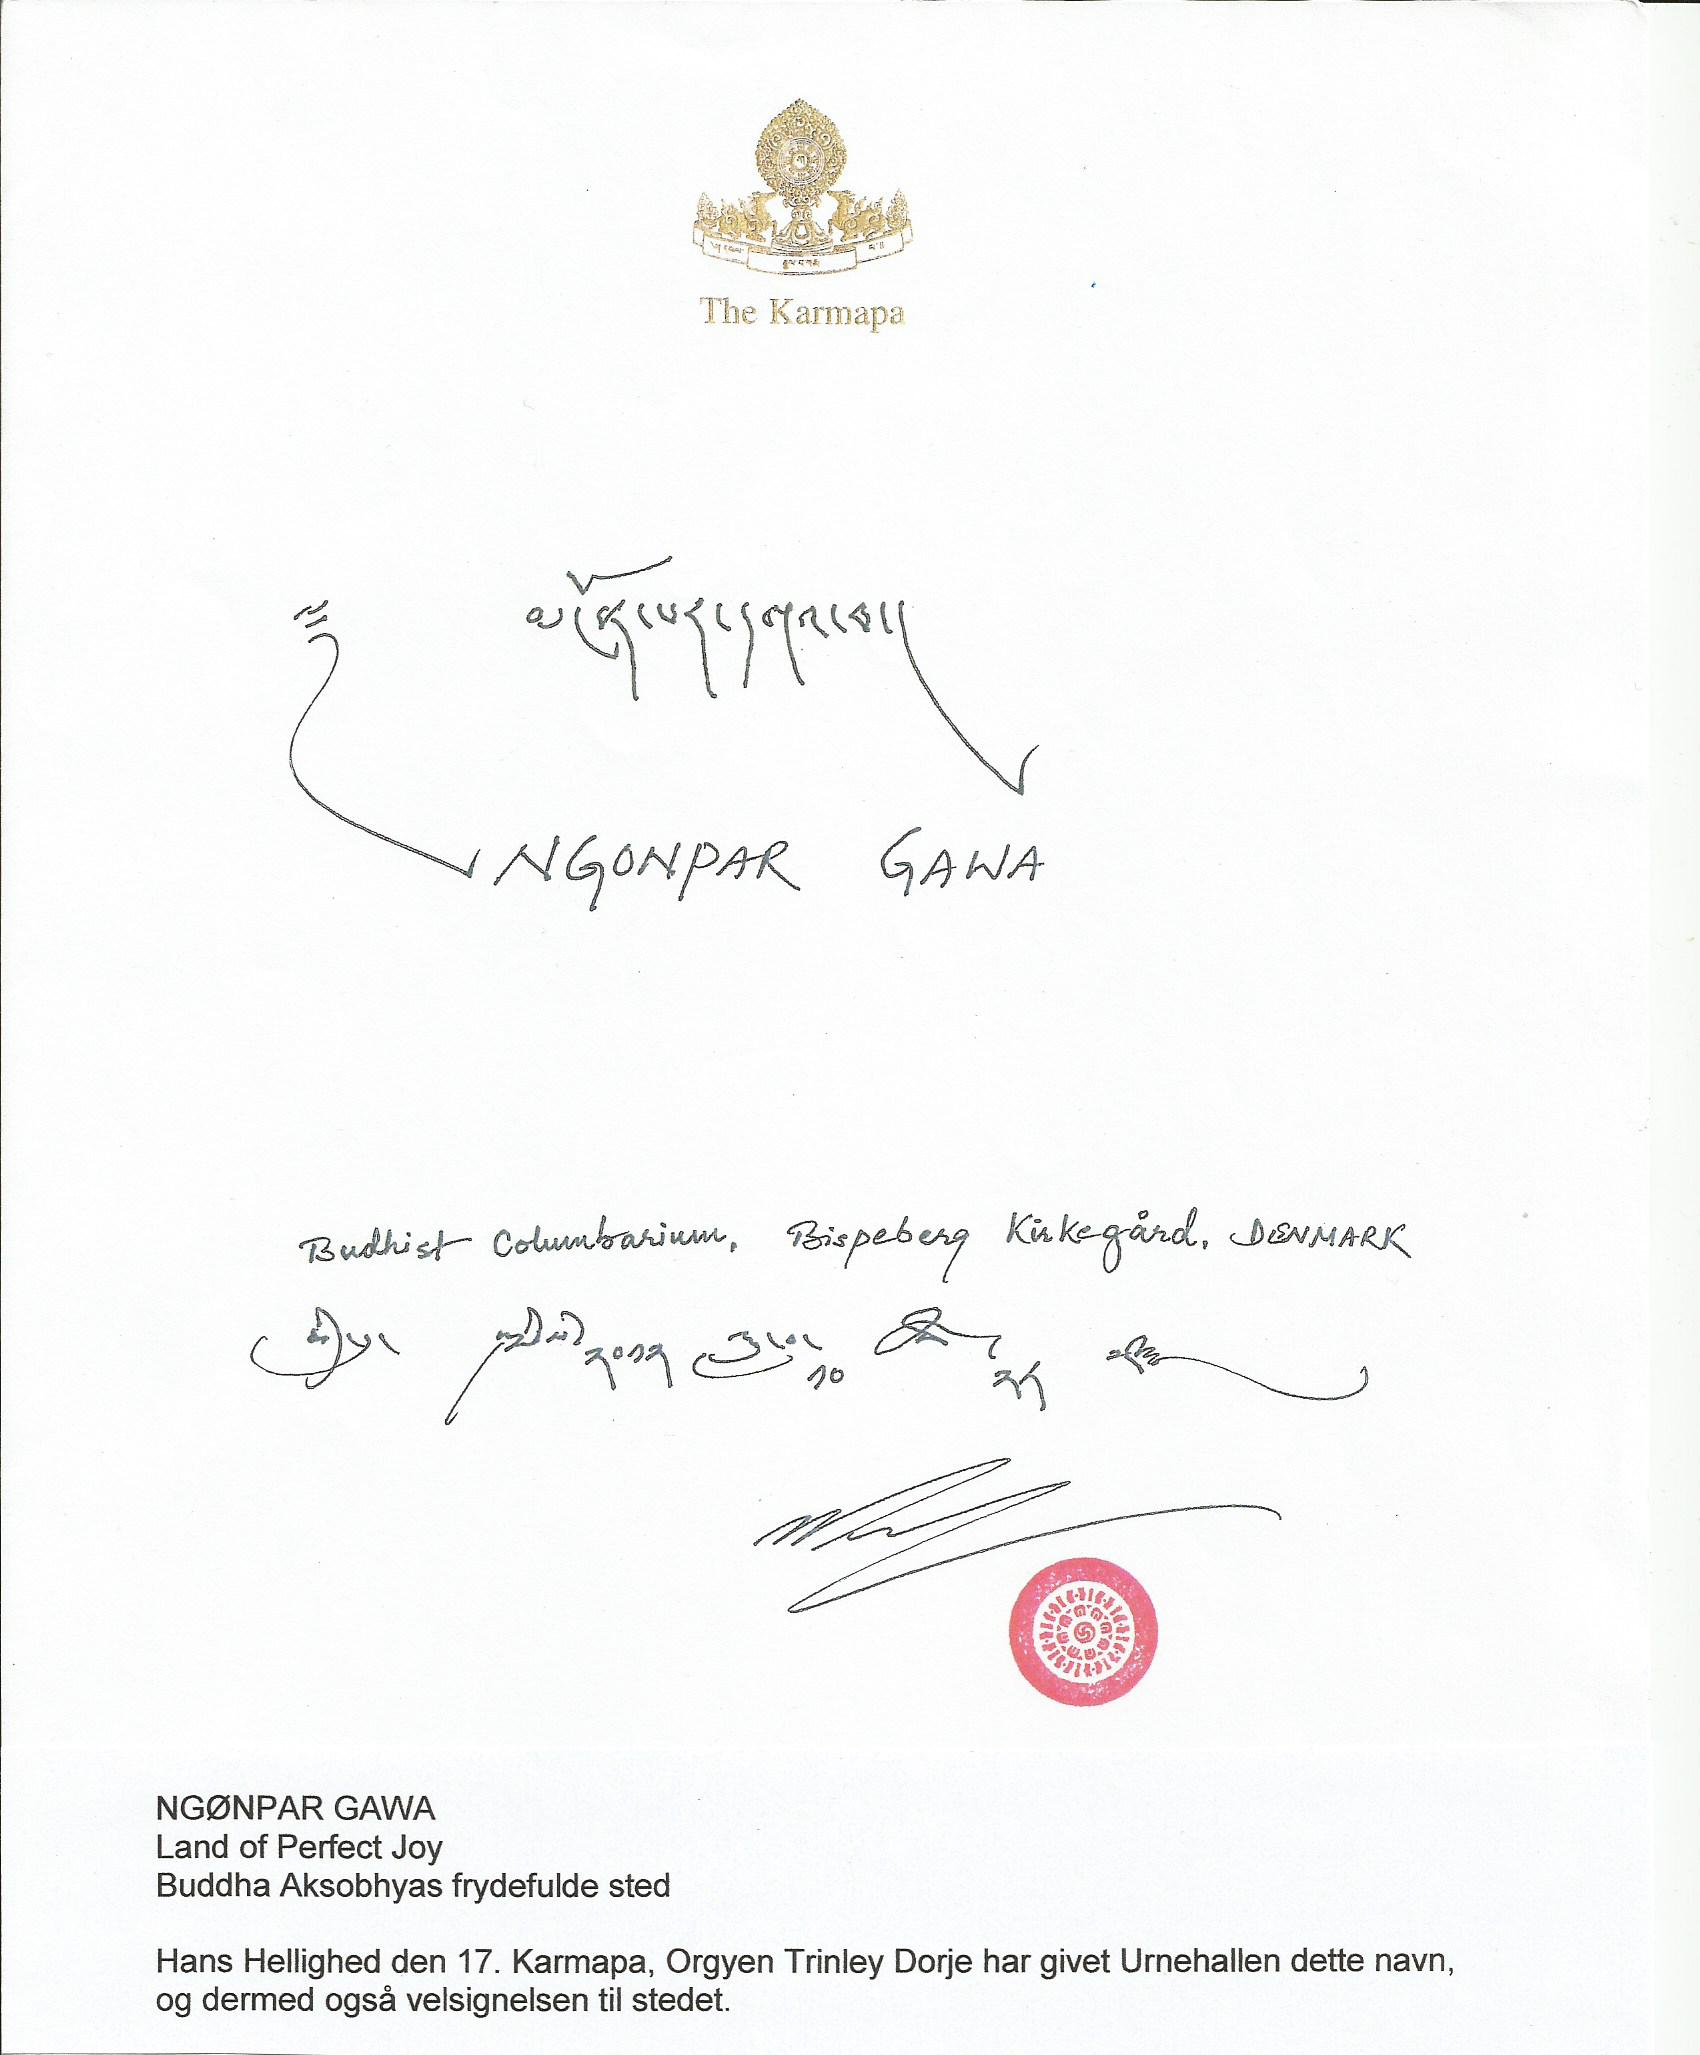 The Karmapa
མངོན་པར་དགའ་བ།
NGONPAR GAWA
Budhist Columbarium, Bispeberg Kirkegård, DENMARK
༢༠༡༢ ༡༠
NGØNPAR GAWA
Land of Perfect Joy
Buddha Aksobhyas frydefulde sted
Hans Hellighed den 17. Karmapa, Orgyen Trinley Dorje har givet Urnehallen dette navn,
og dermed også velsignelsen til stedet.